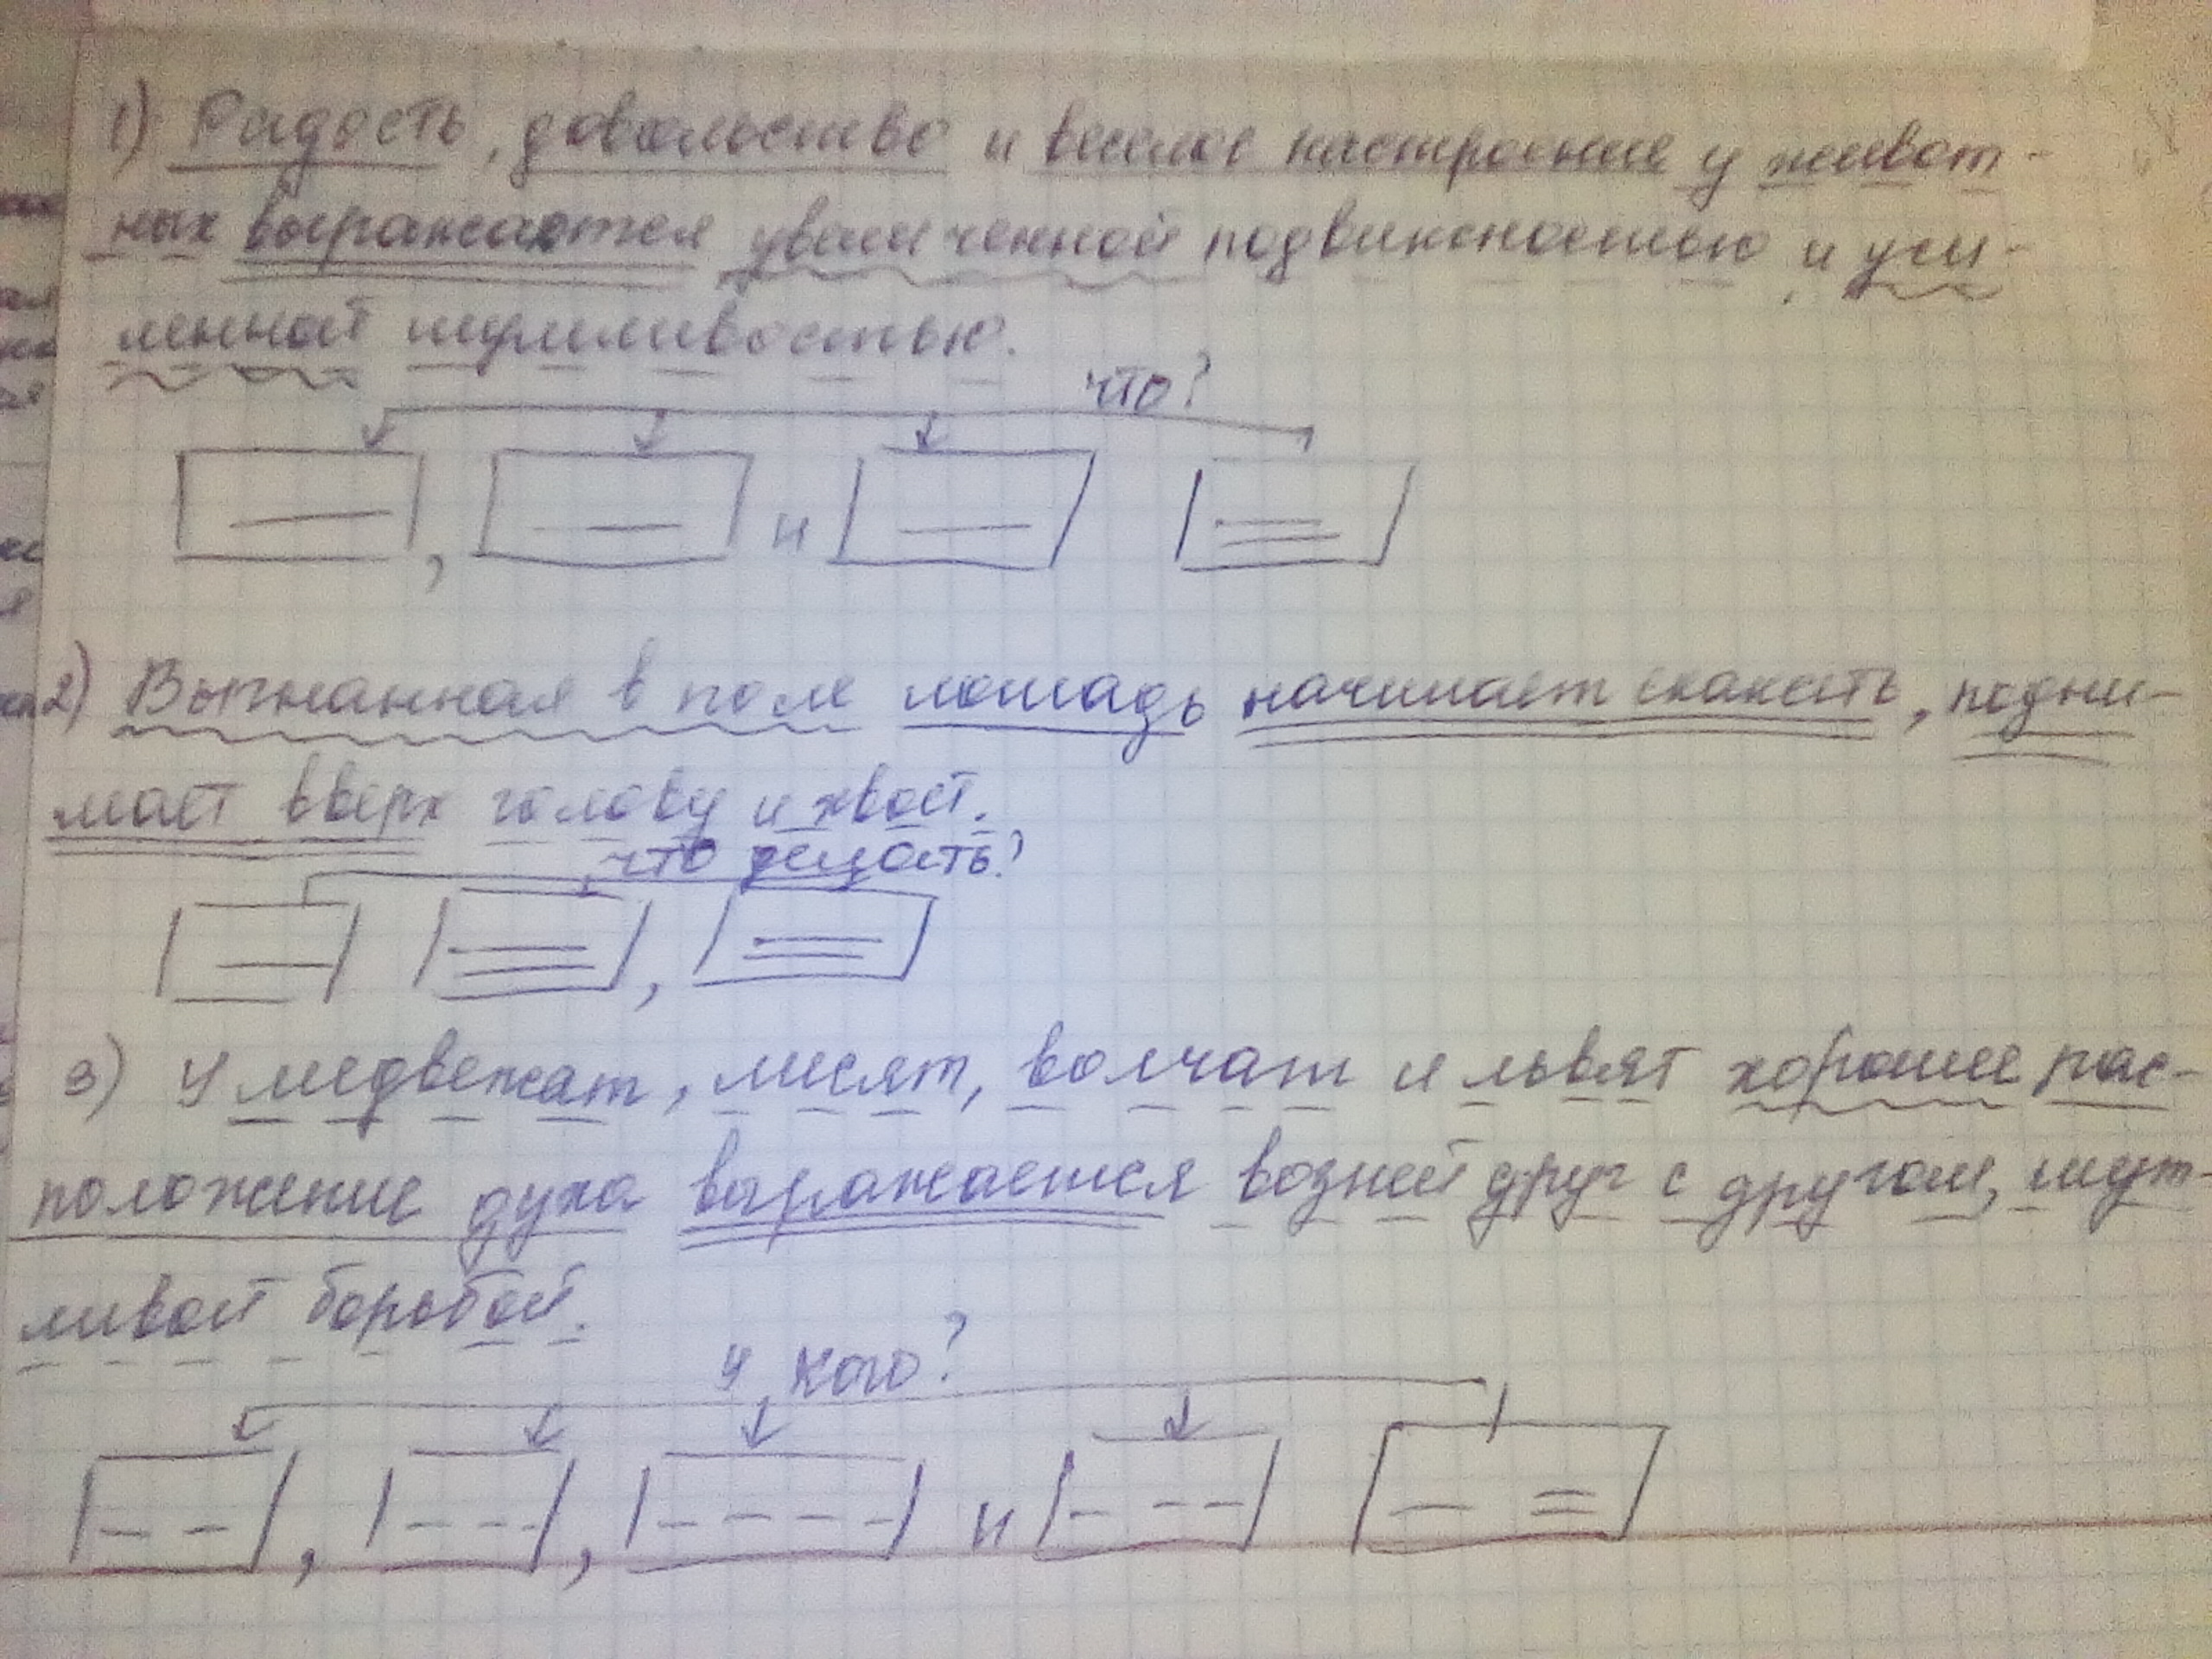 1) Радость, довольство и веселое настроение у живот-
ных выражается увеличенной подвижностью и уси-
ленной шумливостью.
что?
, и
2) Выгнанная в поле лошадь начинает скакать, подни-
мает вверх голову и хвост.
что делать?
,
3) У медвежат, лисят, волчат и львят хорошее рас-
положение духа выражается возней друг с другом, шут-
ливой борьбой.
у кого?
, , и